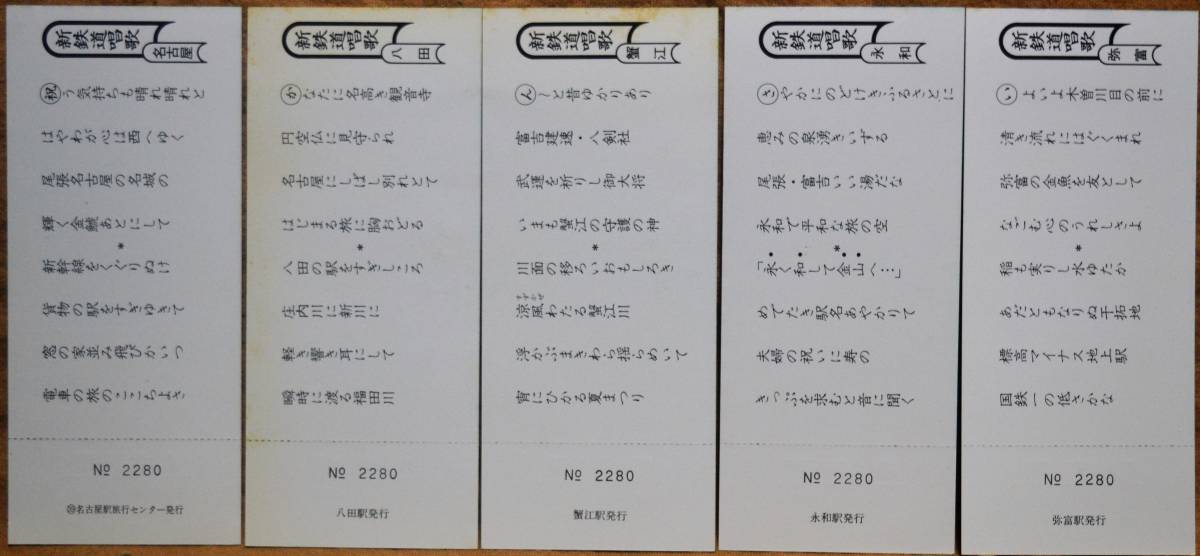 新鉄道唱歌
名古屋
祝う気持ちも晴れ晴れと
はやわが心は西へゆく
尾張名古屋の名城の
輝く金鯱あとにして
*
新幹線をくぐりぬけ
貨物の駅をすぎゆきて
窓の家並み飛びかいつ
電車の旅のここちよさ
№ 2280
名古屋駅旅行センター発行
新鉄道唱歌
八田
かなたに名高き観音寺
円空仏に見守られ
名古屋にしばし別れとて
はじまる旅に胸おどる
*
八田の駅をすぎしころ
庄内川に新川に
軽き響き耳にして
瞬時に渡る福田川
№ 2280
八田駅発行
新鉄道唱歌
蟹江
ん〜と昔ゆかりあり
富吉建速・八剣社
武運を祈りし御大将
いまも蟹江の守護の神
*
川面の移ろいおもしろき
涼風わたる蟹江川
すずかぜ
浮かぶまきわら揺らめいて
宵にひかる夏まつり
№ 2280
蟹江駅発行
新鉄道唱歌
永和
さやかにのどけきふるさとに
恵みの泉湧きいずる
尾張・富吉いい湯だな
永和で平和な旅の空
*
「永く和して金山へ…」
めでたき駅名あやかりて
夫婦の祝いに寿の
きっぷを求むと音に聞く
№ 2280
永和駅発行
新鉄道唱歌
弥富
いよいよ木曽川目の前に
清き流れにはぐくまれ
弥富の金魚を友として
なごむ心のうれしさよ
*
稲も実りし水ゆたか
あだともなりぬ干拓地
標高マイナス地上駅
国鉄一の低さかな
№ 2280
弥富駅発行